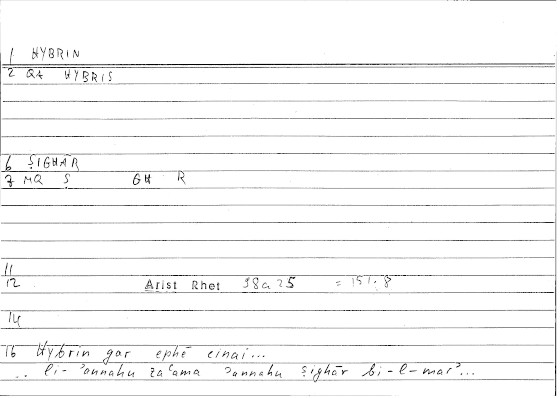 1 HYBRIN
2 QA HYBRIS
6 ṢIGHĀR
7 MQ Ṣ GH R
11
12 Arist Rhet 98a25 = 151.8
14
16 Hybrin gar ephē einai...
.. li-ʾannahu zaʿama ʾannahu ṣighār bi-l-marʾ...